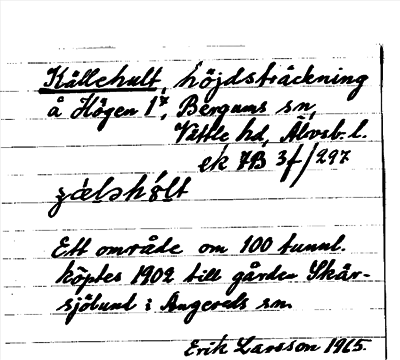 Källehult, höjdsträckning
å Högen 1⁴, Bergums sn,
Vättle hd, Älvsb. l.
ek 7B 3f/297
Ett område om 100 tunnl.
köptes 1902 till gården Skår-
sjölund i Angereds sn.
Erik Larsson 1965.